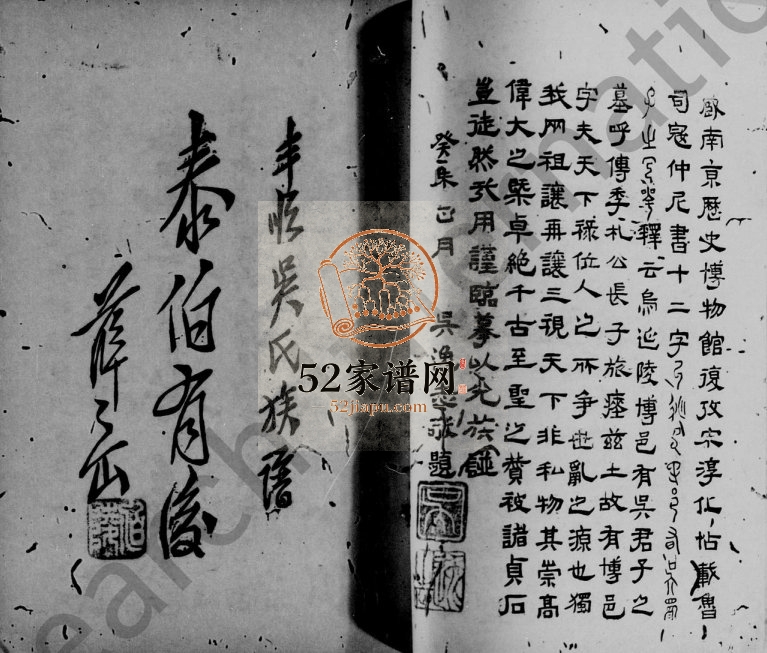 南京歷史博物館復攷宋淳化帖載魯
司寇仲尼書十二字
釋云烏延陵博邑有吳君子之
墓呼傳季札公長子旅瘞茲土故有博邑
字夫天下祿位人之所爭世亂之源也獨
我网祖讓再讓三視天下非私物其崇高
偉大之槩卓絶千古至聖之贊被諸貞石
豈徒然攷用謹臨摹以光族譜
癸未正月 吳 敬題
丰順吳氏族譜
泰伯有後
薛岳
52家谱网
52jiapu.com